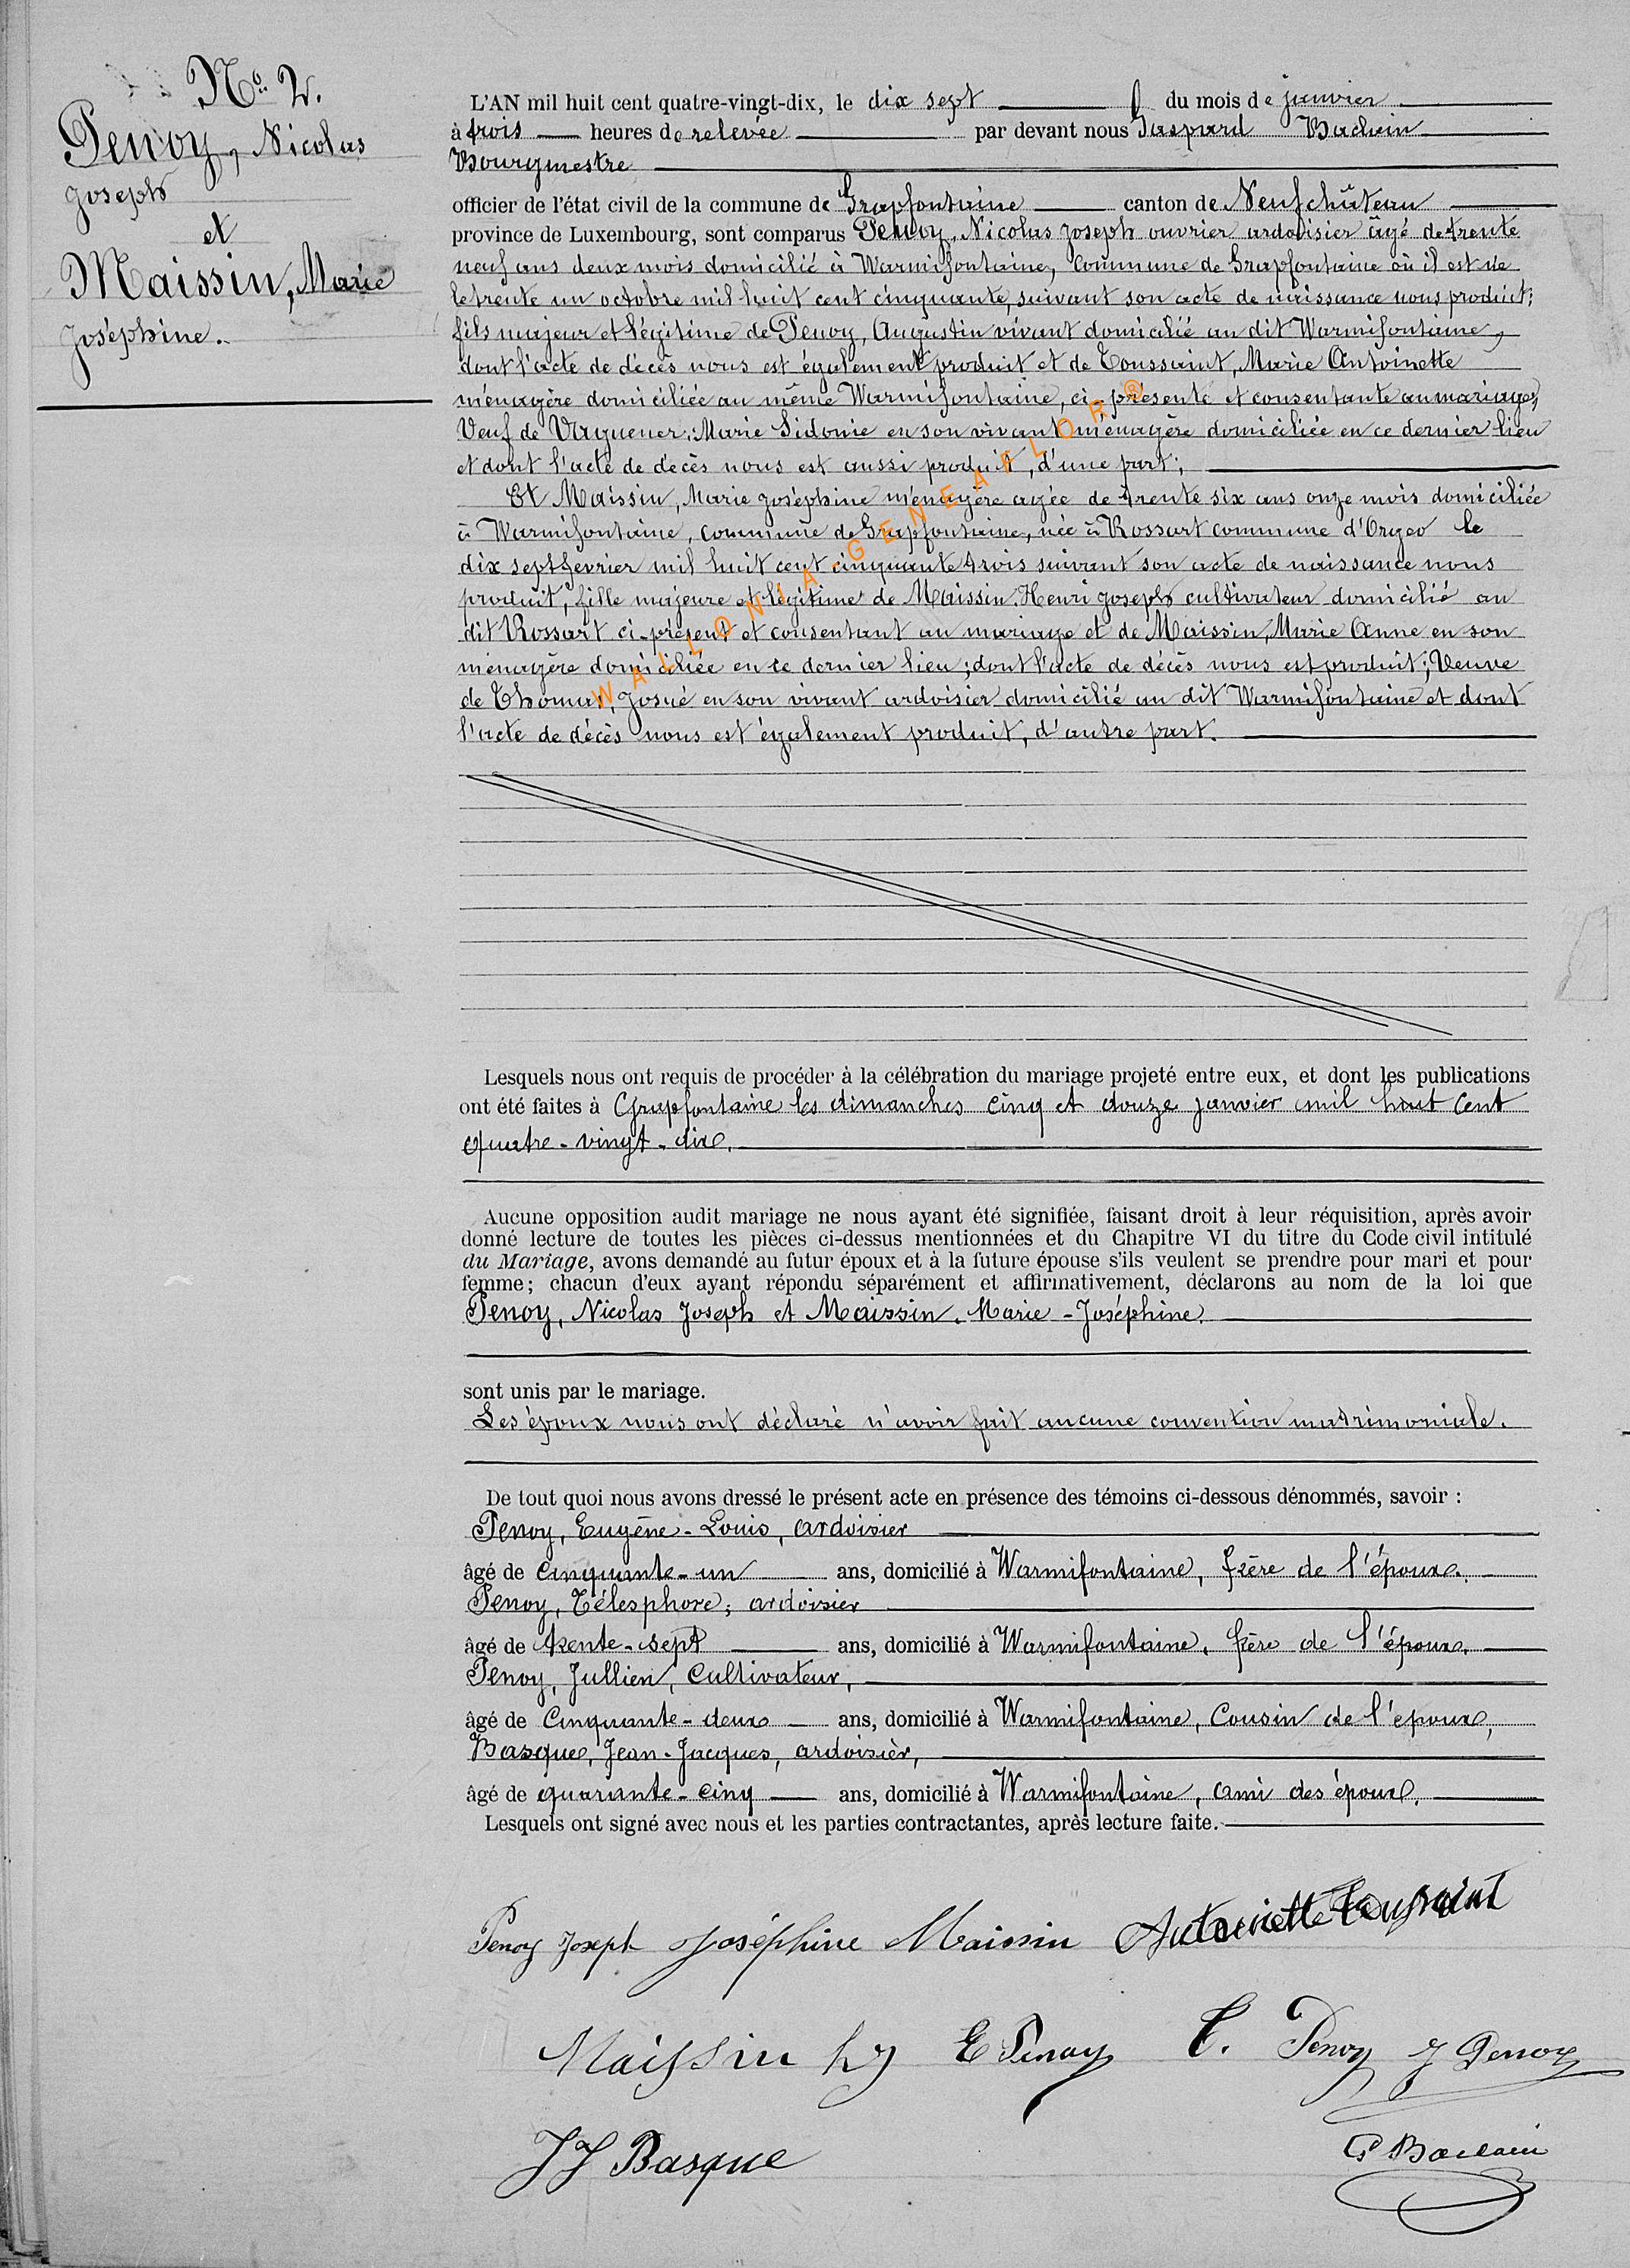 No 2.
Penoy, Nicolas
Joseph
et
Maissin, Marie
Joséphine.
L'AN mil huit cent quatre-vingt-dix, le dix sept du mois de janvier
à trois heures de relevée par devant nous Gaspard Bachain
Bourgmestre
officier de l'état civil de la commune de Grapfontaine canton de Neufchâteau
province de Luxembourg, sont comparus Penoy, Nicolas Joseph ouvrier ardoisier âgé de trente
neuf ans deux mois domicilié à Warmifontaine, Commune de Grapfontaine où il est né
le trente un octobre mil huit cent cinquante, suivant son acte de naissance nous produit;
fils majeur et légitime de Penoy, Augustin vivant domicilié au dit Warmifontaine,
dont l'acte de décès nous est également produit et de Toussaint, Marie Antoinette
ménagère domiciliée au même Warmifontaine, ci-présente et consentante au mariage,
Veuf de Vaguener, Marie Sidonie en son vivant ménagère domiciliée en ce dernier lieu
et dont l'acte de décès nous est aussi produit, d'une part;
Et Maissin, Marie Joséphine ménagère agée de trente six ans onze mois domiciliée
à Warmifontaine, commune de Grapfontaine, née à Rossart commune d'Orgeo le
dix sept fevrier mil huit cent cinquante trois suivant son acte de naissance nous
produit, fille majeure et légitime de Maissin. Henri Joseph cultivateur domicilié au
dit Rossart ci-présent et consentant au mariage et de Maissin, Marie Anne en son
ménagère domiciliée en ce dernier lieu; dont l'acte de décès nous est produit; Veuve
de Thomas, Josué en son vivant ardoisier domicilié au dit Warmifontaine et dont
l'acte de décès nous est également produit, d'autre part.
WALLONIA-GENEAFLOR®
Lesquels nous ont requis de procéder à la célébration du mariage projeté entre eux, et dont les publications
ont été faites à Grapfontaine les dimanches cinq et douze janvier mil huit cent
quatre-vingt-dix.
Aucune opposition audit mariage ne nous ayant été signifiée, faisant droit à leur réquisition, après avoir
donné lecture de toutes les pièces ci-dessus mentionnées et du Chapitre VI du titre du Code civil intitulé
du Mariage, avons demandé au futur époux et à la future épouse s'ils veulent se prendre pour mari et pour
femme; chacun d'eux ayant répondu séparément et affirmativement, déclarons au nom de la loi que
Penoy, Nicolas Joseph et Maissin. Marie-Joséphine.
sont unis par le mariage.
Les époux nous ont déclaré n'avoir fait aucune convention matrimoniale.
De tout quoi nous avons dressé le présent acte en présence des témoins ci-dessous dénommés, savoir :
Penoy, Eugène-Louis, ardoisier
âgé de cinquante-un ans, domicilié à Warmifontaine, frère de l'époux.
Penoy, Télesphore, ardoisier
âgé de trente-sept ans, domicilié à Warmifontaine. frère de l'époux.
Penoy, Jullien, Cultivateur,
âgé de Cinquante-deux ans, domicilié à Warmifontaine, Cousin de l'epoux,
Basque, Jean-Jacques, ardoisièr,
âgé de quarante-cinq ans, domicilié à Warmifontaine, ami des époux.
Lesquels ont signé avec nous et les parties contractantes, après lecture faite.
Penoy Joseph Joséphine Maissin Antoinette Toussaint
Maissin hy E Penoy T. Penoy J Penoy
JJ Basque G Bachain